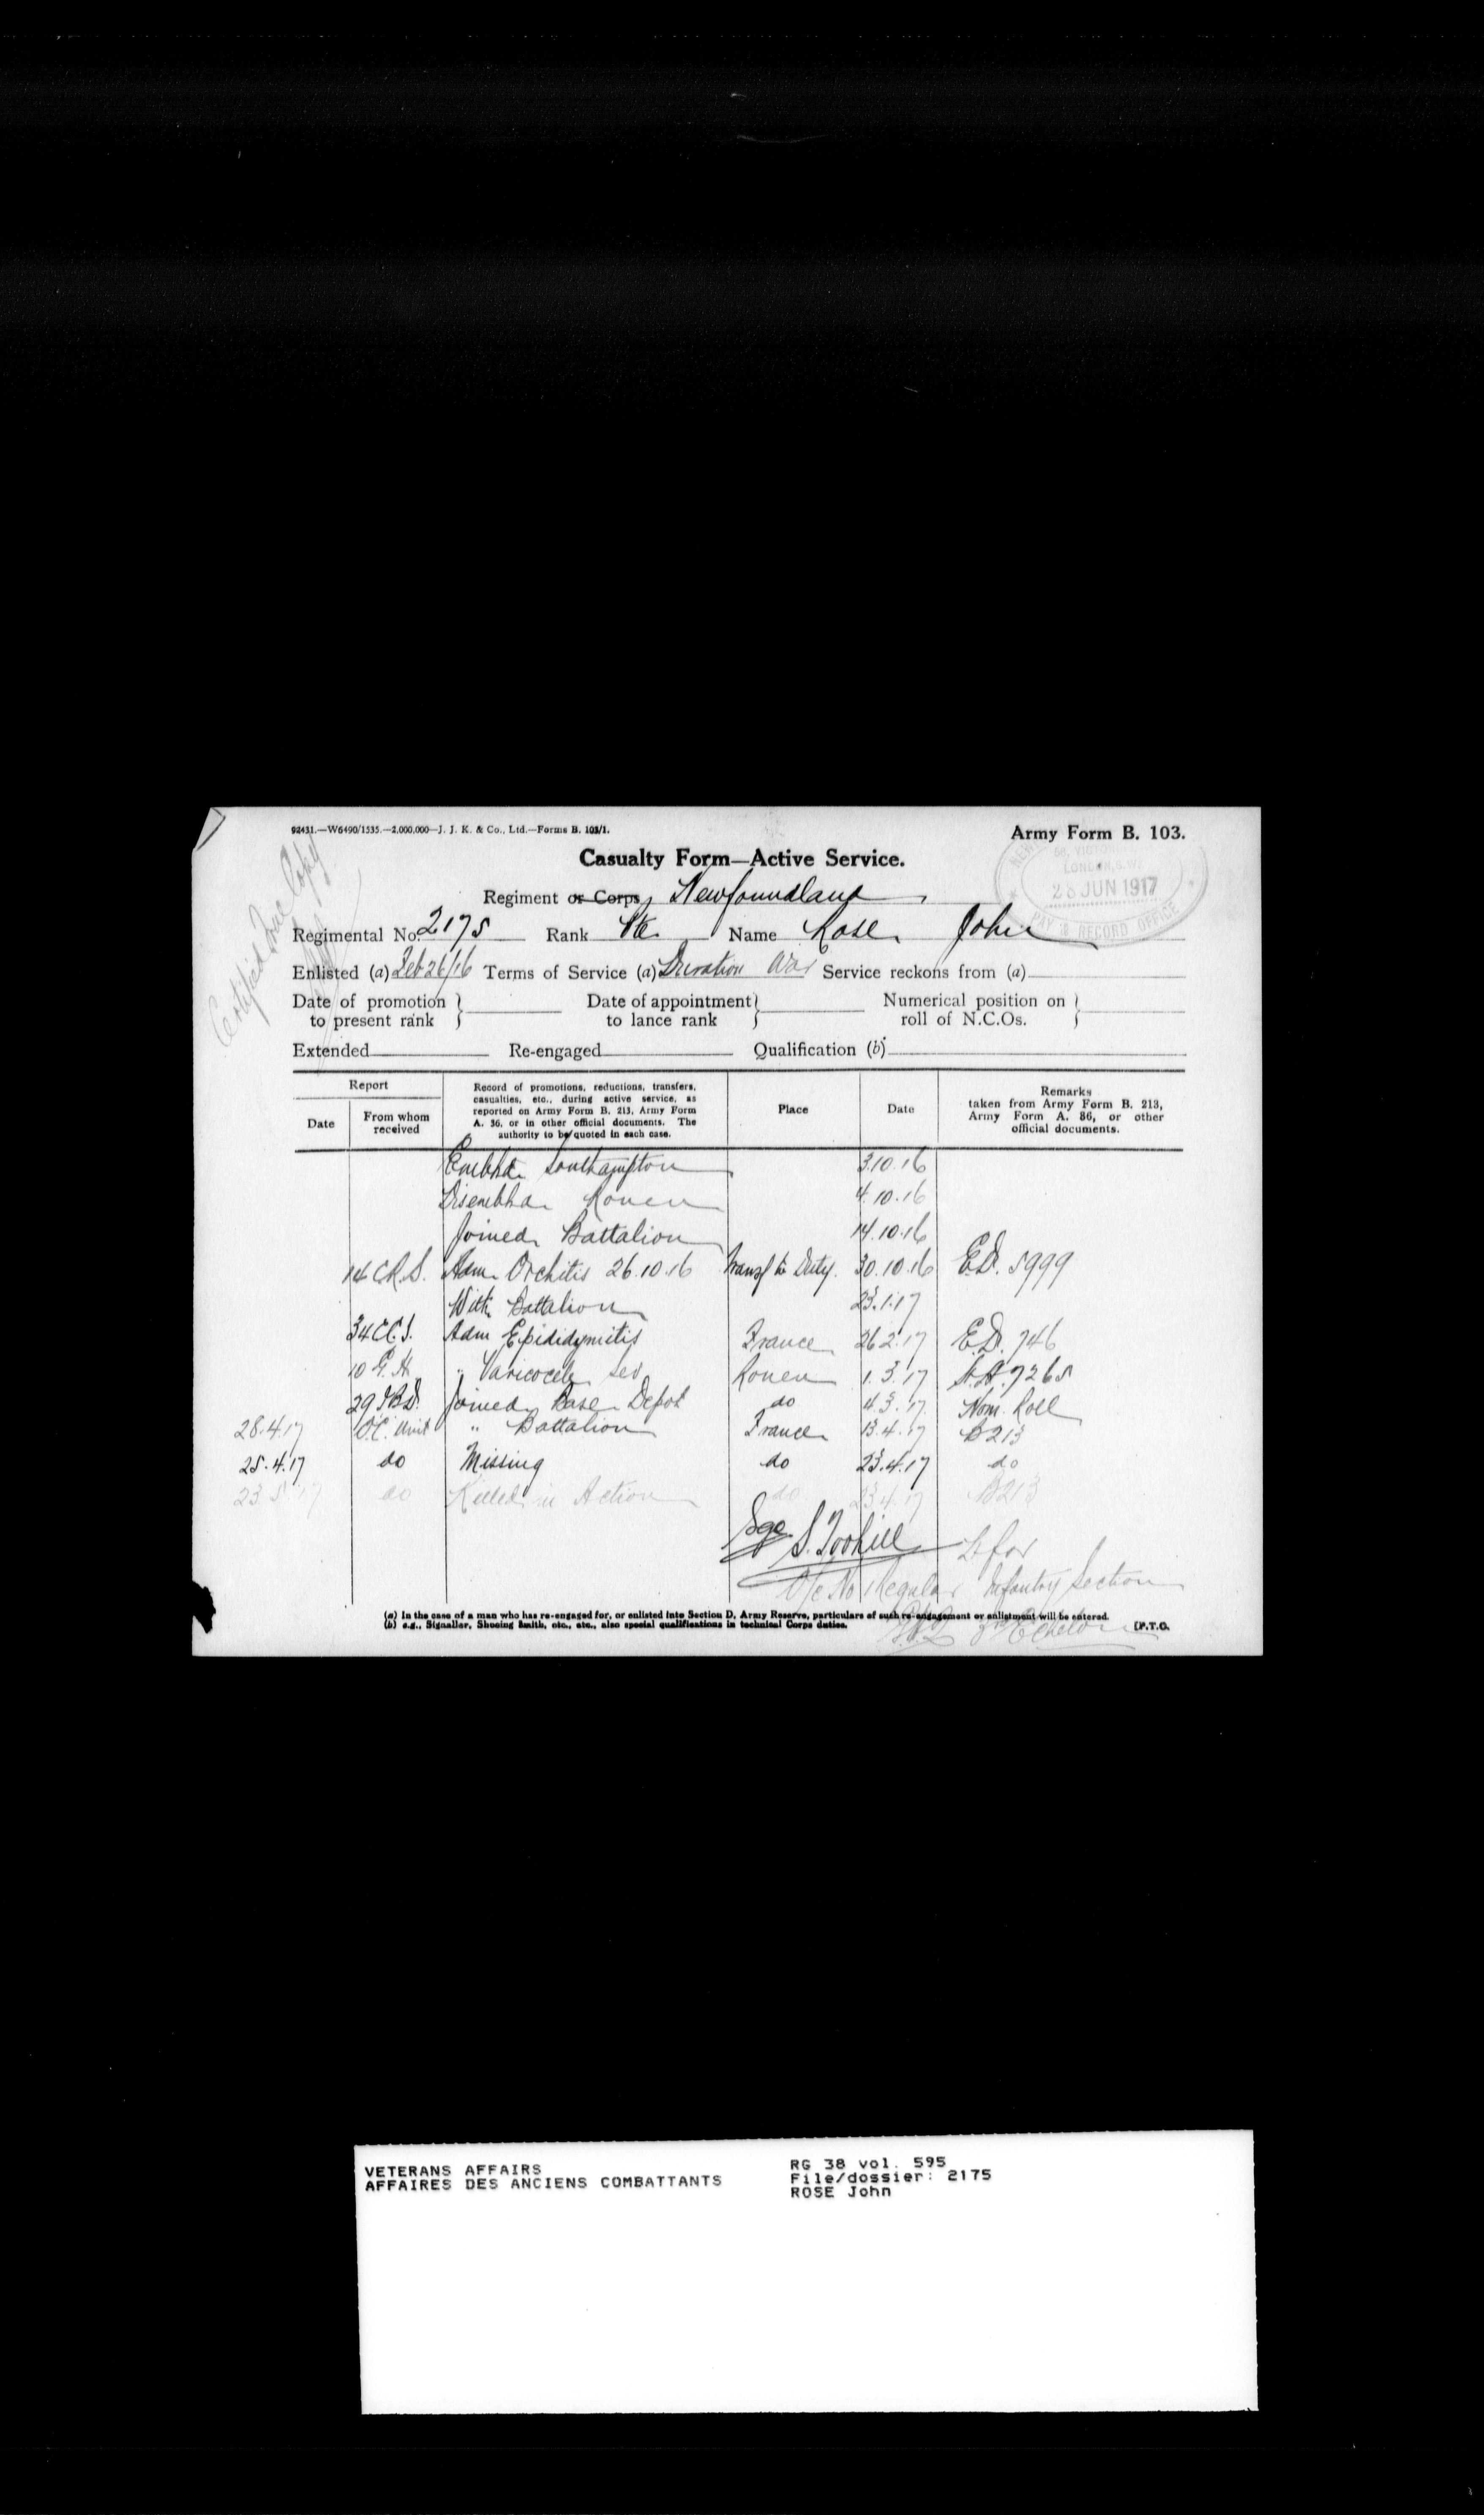 92431.—W6490/1535.—2,000,000—J. J. K. & Co., Ltd.—Forms B. 103/1.
Army Form B. 103.
Casualty Form—Active Service.
LONDON, S.W.
28 JUN 1917
PAY & RECORD OFFICE
Certified true Copy
Regiment or Corps Newfoundland
Regimental No. 2175 Rank Pte. Name Rose, John
Enlisted (a) Feb 26/16 Terms of Service (a) Duration War Service reckons from (a)
Date of promotion to present rank } Date of appointment to lance rank } Numerical position on roll of N.C.Os. }
Extended Re-engaged Qualification (b)
Report
Date
From whom received
Record of promotions, reductions, transfers, casualties, etc., during active service, as reported on Army Form B. 213, Army Form A. 36, or in other official documents. The authority to be quoted in each case.
Place
Date
Remarks taken from Army Form B. 213, Army Form A. 36, or other official documents.
Embkd Southampton 3.10.16
Disembkd Rouen 4.10.16
Joined Battalion 14.10.16
14 C.R.S. Adm. Orchitis 26.10.16 Transf to Duty. 30.10.16 E.D. 5999
With Battalion 23.1.17
34 CCS. Adm Epididymitis France 26.2.17 E.D. 746
10 G.H. " Varicocele Rouen 1.3.17 7265
29 IBD. Joined Base Depot do 4.3.17 Nom. Roll
28.4.17 O.C. Unit " Battalion France 13.4.17 B213
25.4.17 do Missing do 23.4.17 do
23.5.17 do Killed in Action do 23.4.17 B213
Sgd S. Toohill Lt for
O/c No 1 Regular Infantry Section
3rd Echelon
(a) In the case of a man who has re-engaged for, or enlisted into Section D, Army Reserve, particulars of such re-engagement or enlistment will be entered.
(b) e.g., Signaller, Shoeing Smith, etc., etc., also special qualifications in technical Corps duties.
[P.T.O.
VETERANS AFFAIRS
AFFAIRES DES ANCIENS COMBATTANTS
RG 38 vol. 595
File/dossier: 2175
ROSE John